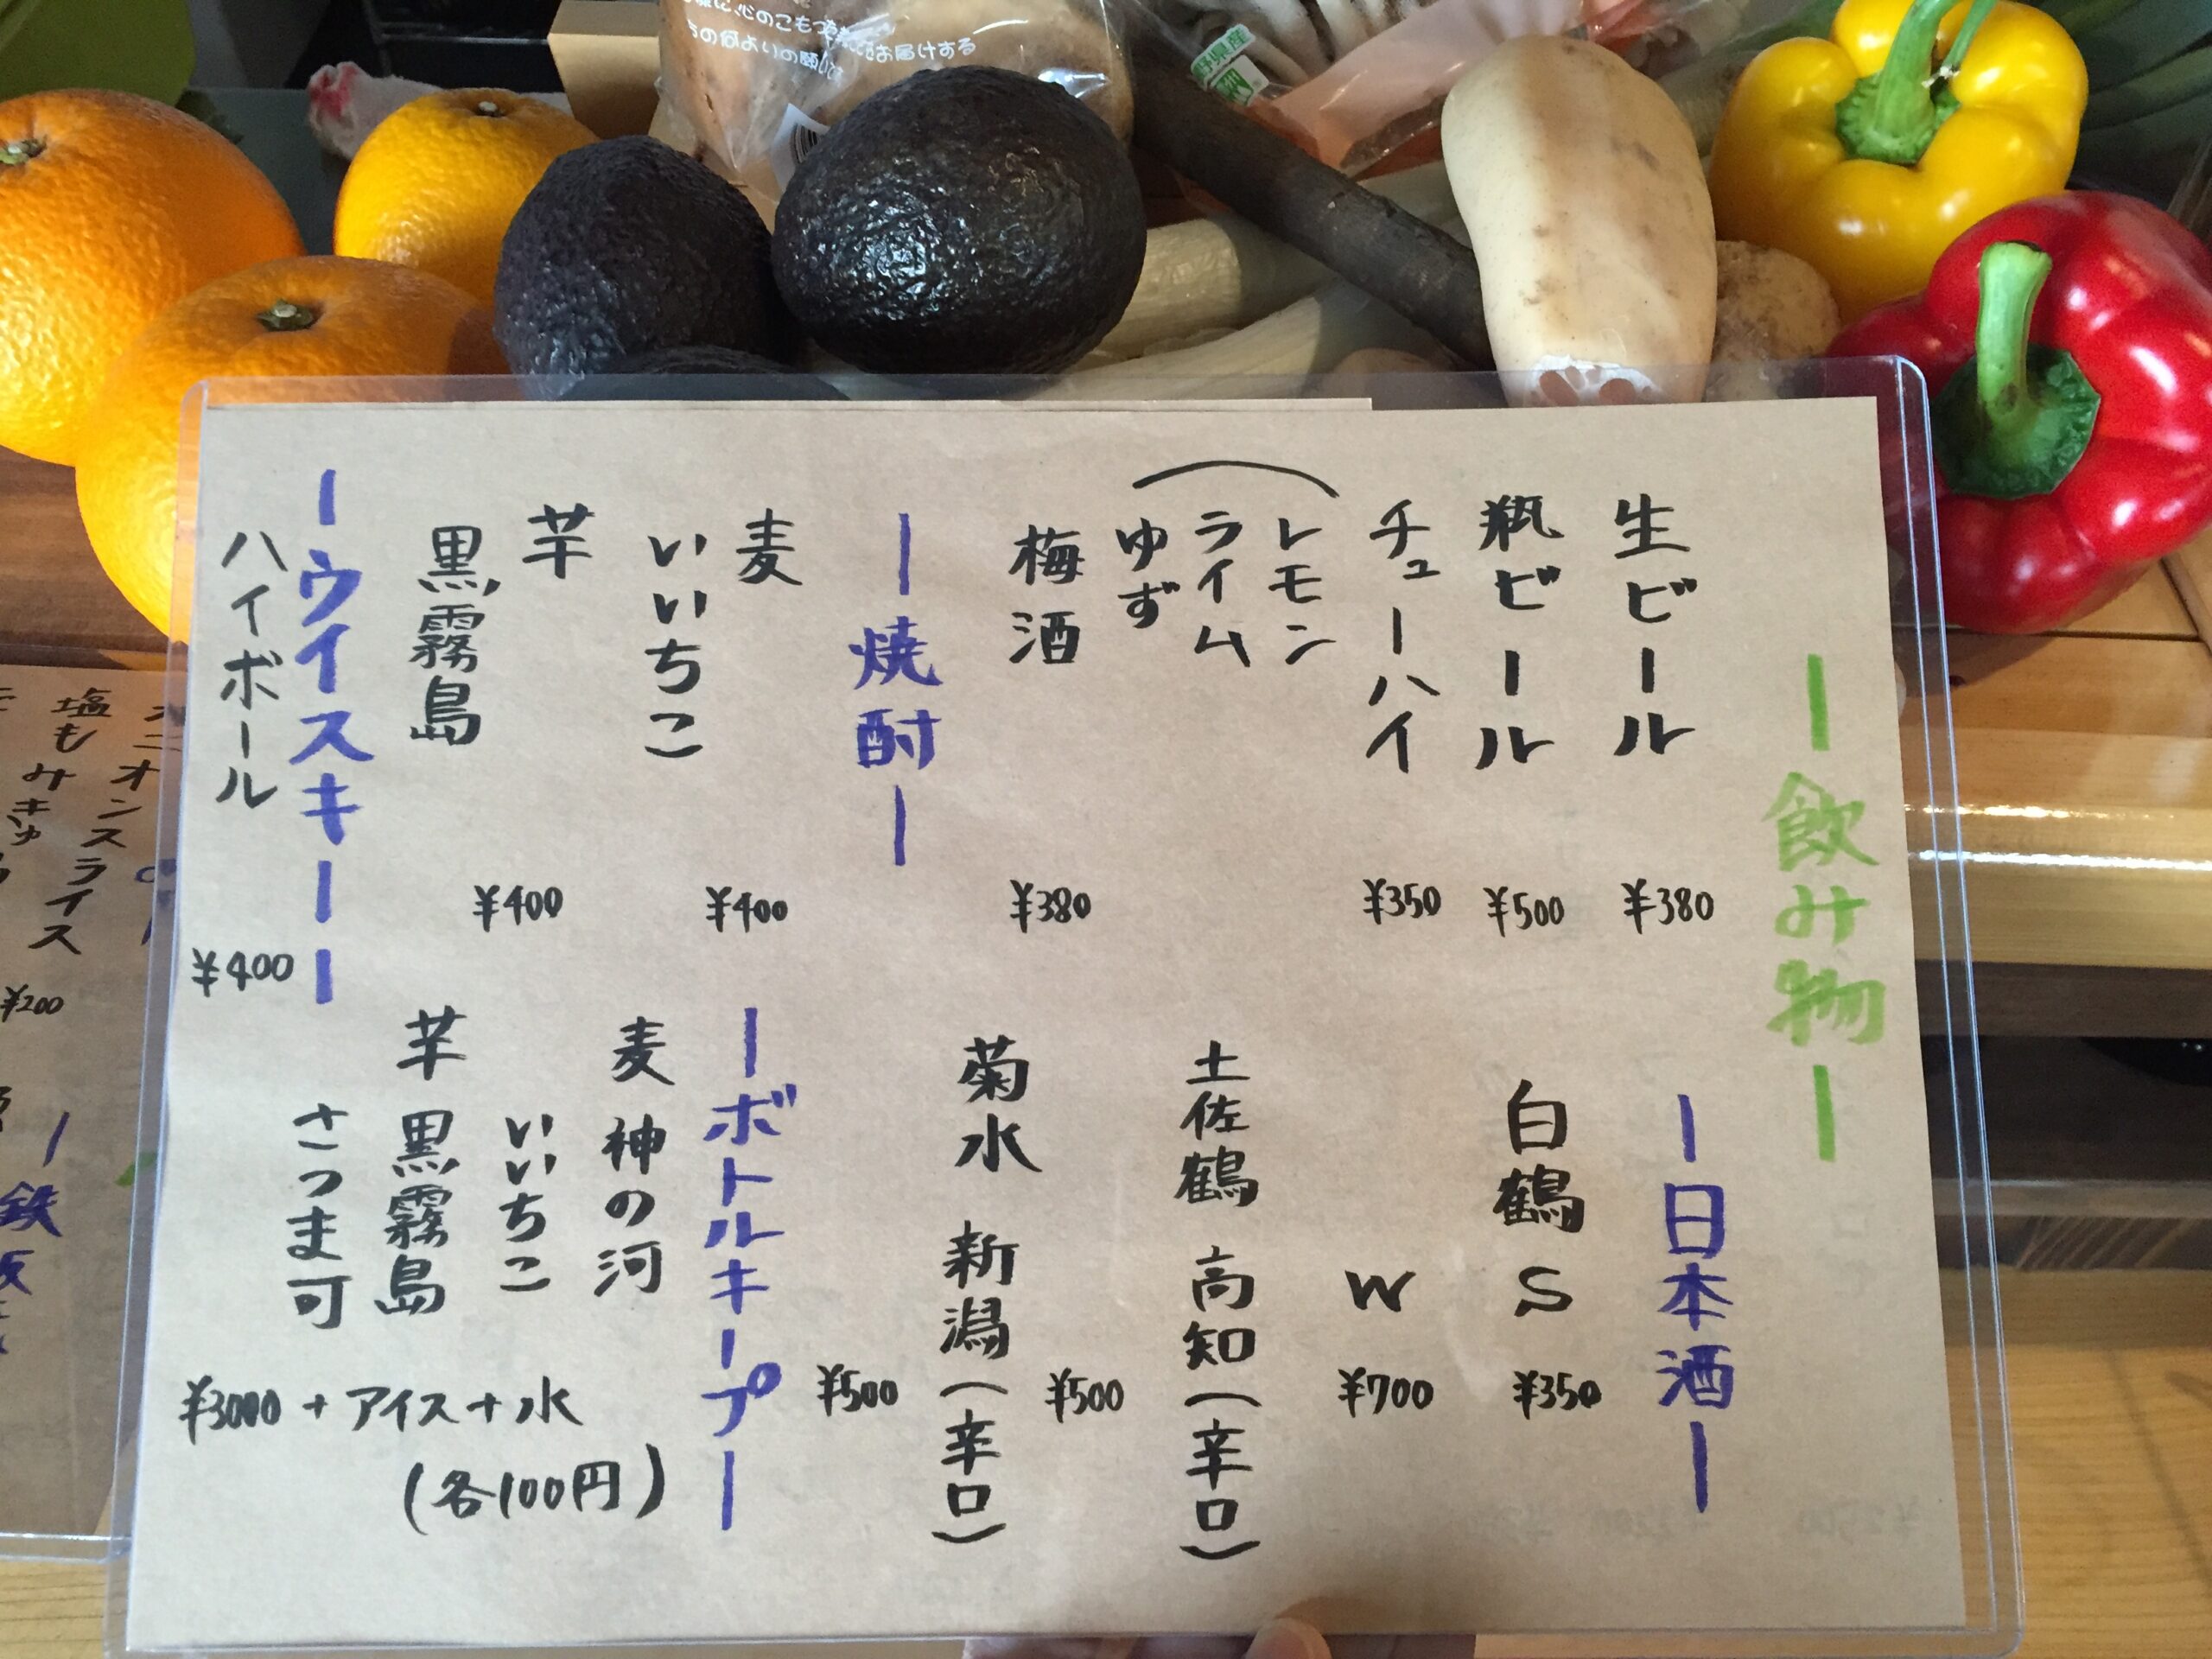 ー飲み物ー
生ビール ¥380
瓶ビール ¥500
チューハイ ¥350
(レモン
ライム
ゆず
梅酒 ¥380
ー焼酎ー
麦 ¥400
いいちこ
芋 ¥400
黒霧島
ーウイスキーー
ハイボール ¥400
ー日本酒ー
白鶴 S ¥350
W ¥700
土佐鶴 高知(辛口) ¥500
菊水 新潟(辛口) ¥500
ーボトルキープー
麦 神の河
いいちこ
芋 黒霧島
さつま可
¥3000 + アイス + 水
(各100円)
オニオンスライス
塩もみきゅ
¥200
ー鉄板
お届けする
野県産